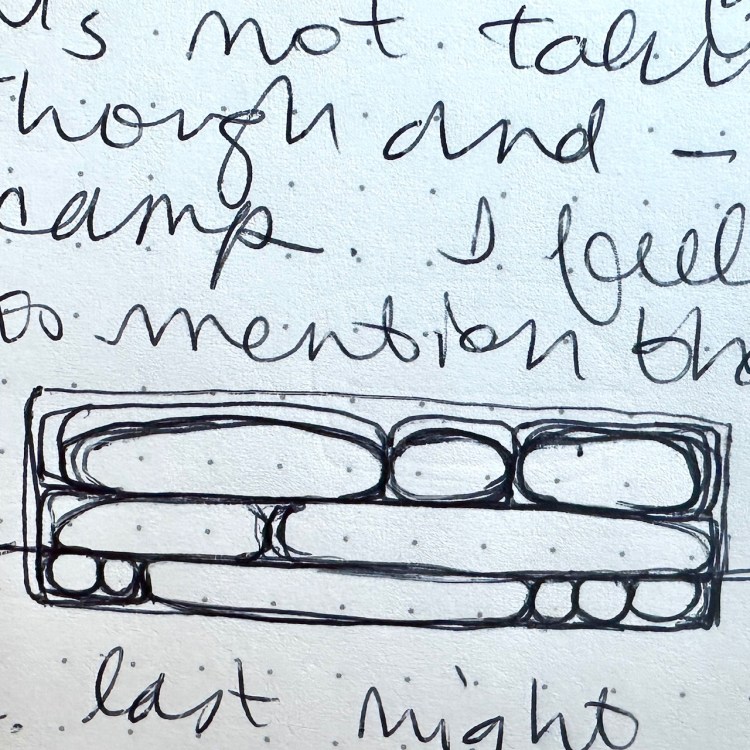 not
though and –
camp. I feel
to mention the
. last night